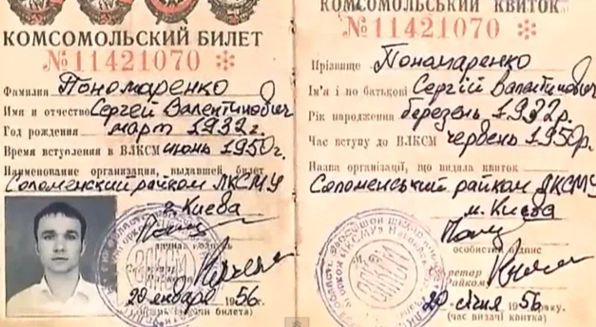 КОМСОМОЛЬСКИЙ БИЛЕТ
№11421070
Фамилия Пономаренко
Имя и отчество Сергей Валентинович
Год рождения март 1932г.
Время вступления в ВЛКСМ июнь 1950г.
Наименование организации, выдавшей билет
Соломенский райком ЛКСМУ
г. Киева
20 января 1956г.
КОМСОМОЛЬСЬКИЙ КВИТОК
№11421070
Прізвище Пономаренко
Ім'я і по батькові Сергій Валентинович
Рік народження березень 1932р.
Час вступу до ВЛКСМ червень 1950р.
Назва організації, що видала квиток
Соломенський райком ЛКСМУ
м. Києва
особистий підпис
20 січня 1956 року.
(час видачі квитка)